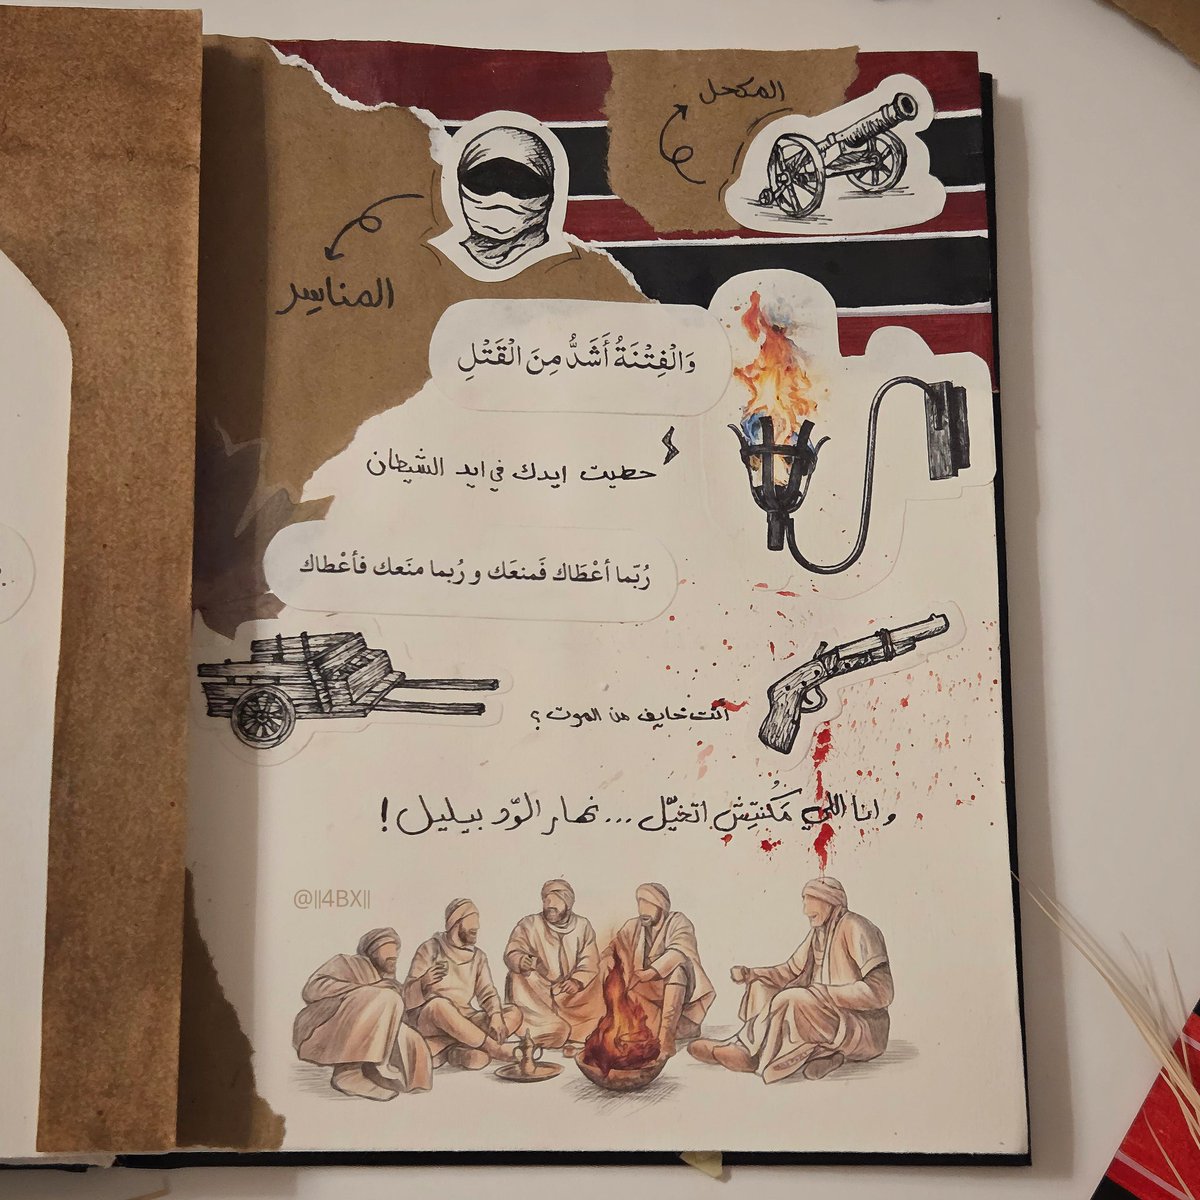 المكحل
المناسِر
وَالْفِتْنَةُ أَشَدُّ مِنَ الْقَتْلِ
حطيت ايدك في ايد الشيطان
رُبّما أعْطَاك فَمنعَك و رُبما منَعك فأعْطاك
أنت خايف من الموت ؟
وانا اللي مَكُنتِش اتخيّل ... نهار الوّد بيليل !
@||4BX||